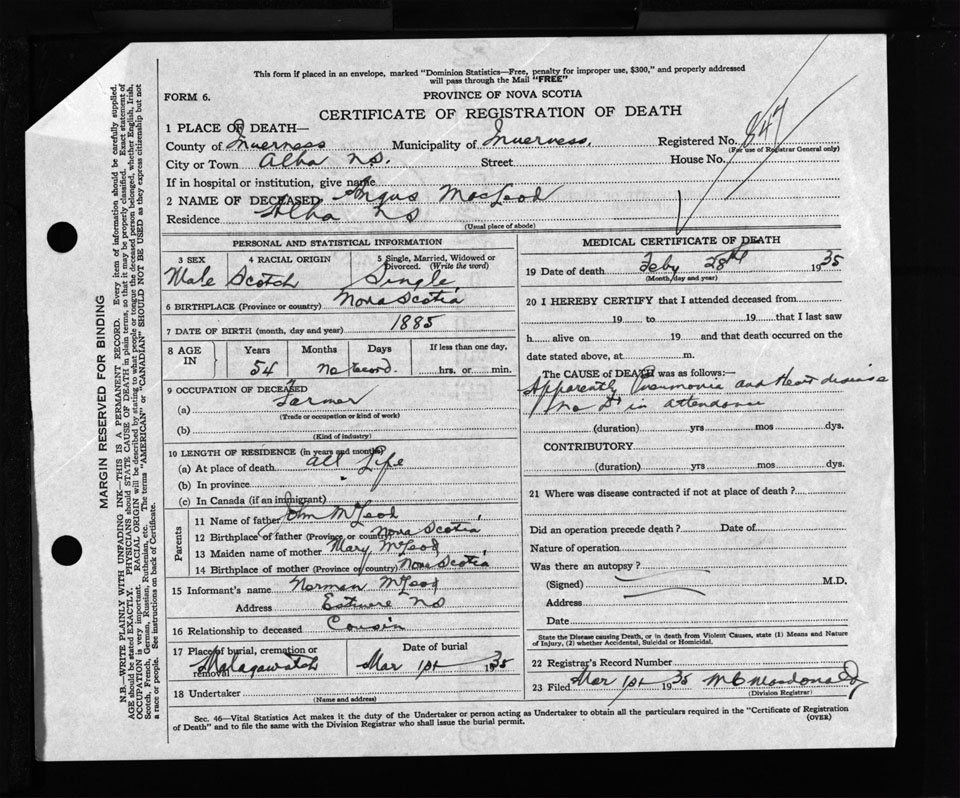 This form if placed in an envelope, marked "Dominion Statistics—Free, penalty for improper use, $300," and properly addressed
will pass through the Mail "FREE"
FORM 6.
PROVINCE OF NOVA SCOTIA
CERTIFICATE OF REGISTRATION OF DEATH
847
1 PLACE OF DEATH—
County of Inverness Municipality of Inverness Registered No.
(For use of Registrar General only)
City or Town Alba N.S. Street House No.
If in hospital or institution, give name
2 NAME OF DECEASED Angus MacLeod
Residence Alba NS
(Usual place of abode)
PERSONAL AND STATISTICAL INFORMATION
3 SEX 4 RACIAL ORIGIN 5 Single, Married, Widowed or Divorced. (Write the word)
Male Scotch Single
6 BIRTHPLACE (Province or country) Nova Scotia
7 DATE OF BIRTH (month, day and year) 1885
8 AGE IN Years Months Days If less than one day,
54 No record. hrs. or min.
9 OCCUPATION OF DECEASED
(a) Farmer
(Trade or occupation or kind of work)
(b)
(Kind of industry)
10 LENGTH OF RESIDENCE (in years and months)
(a) At place of death All Life
(b) In province
(c) In Canada (if an immigrant)
Parents
11 Name of father John McLeod
12 Birthplace of father (Province or country) Nova Scotia
13 Maiden name of mother Mary McLeod
14 Birthplace of mother (Province or country) Nova Scotia
15 Informant's name Norman McLeod
Address NS
16 Relationship to deceased Cousin
17 Place of burial, cremation or removal Malagawatch
Date of burial Mar 1st 1935
18 Undertaker
(Name and address)
MEDICAL CERTIFICATE OF DEATH
19 Date of death Feby 28th 1935
(Month, day and year)
20 I HEREBY CERTIFY that I attended deceased from
19 to 19 that I last saw
h alive on 19 and that death occurred on
date stated above, at m.
The CAUSE of DEATH was as follows:—
Apparently Pneumonia and Heart disease
no Dr in attendance
(duration) yrs mos dys.
CONTRIBUTORY
(duration) yrs mos dys.
21 Where was disease contracted if not at place of death?
Did an operation precede death? Date of
Nature of operation
Was there an autopsy?
(Signed) M.D.
Address
Date
State the Disease causing Death, or in death from Violent Causes, state (1) Means and Nature
of Injury, (2) whether Accidental, Suicidal or Homicidal.
22 Registrar's Record Number
23 Filed Mar 1st 1935 M C Macdonald
(Division Registrar)
Sec. 46—Vital Statistics Act makes it the duty of the Undertaker or person acting as Undertaker to obtain all the particulars required in the "Certificate of Registration
of Death" and to file the same with the Division Registrar who shall issue the burial permit.
(OVER)
MARGIN RESERVED FOR BINDING
N.B.—WRITE PLAINLY WITH UNFADING INK—THIS IS A PERMANENT RECORD. Every item of information should be carefully supplied.
AGE should be stated EXACTLY. PHYSICIANS should STATE CAUSE OF DEATH in plain terms, so that it may be properly classified. Exact statement of
OCCUPATION is very important. RACIAL ORIGIN will be described by stating to what people or tongue the deceased person belonged, whether English, Irish,
Scotch, French, German, Russian, Ruthenian, etc. The terms "AMERICAN" or "CANADIAN" SHOULD NOT BE USED as they express citizenship but not
a race or people. See instructions on back of Certificate.